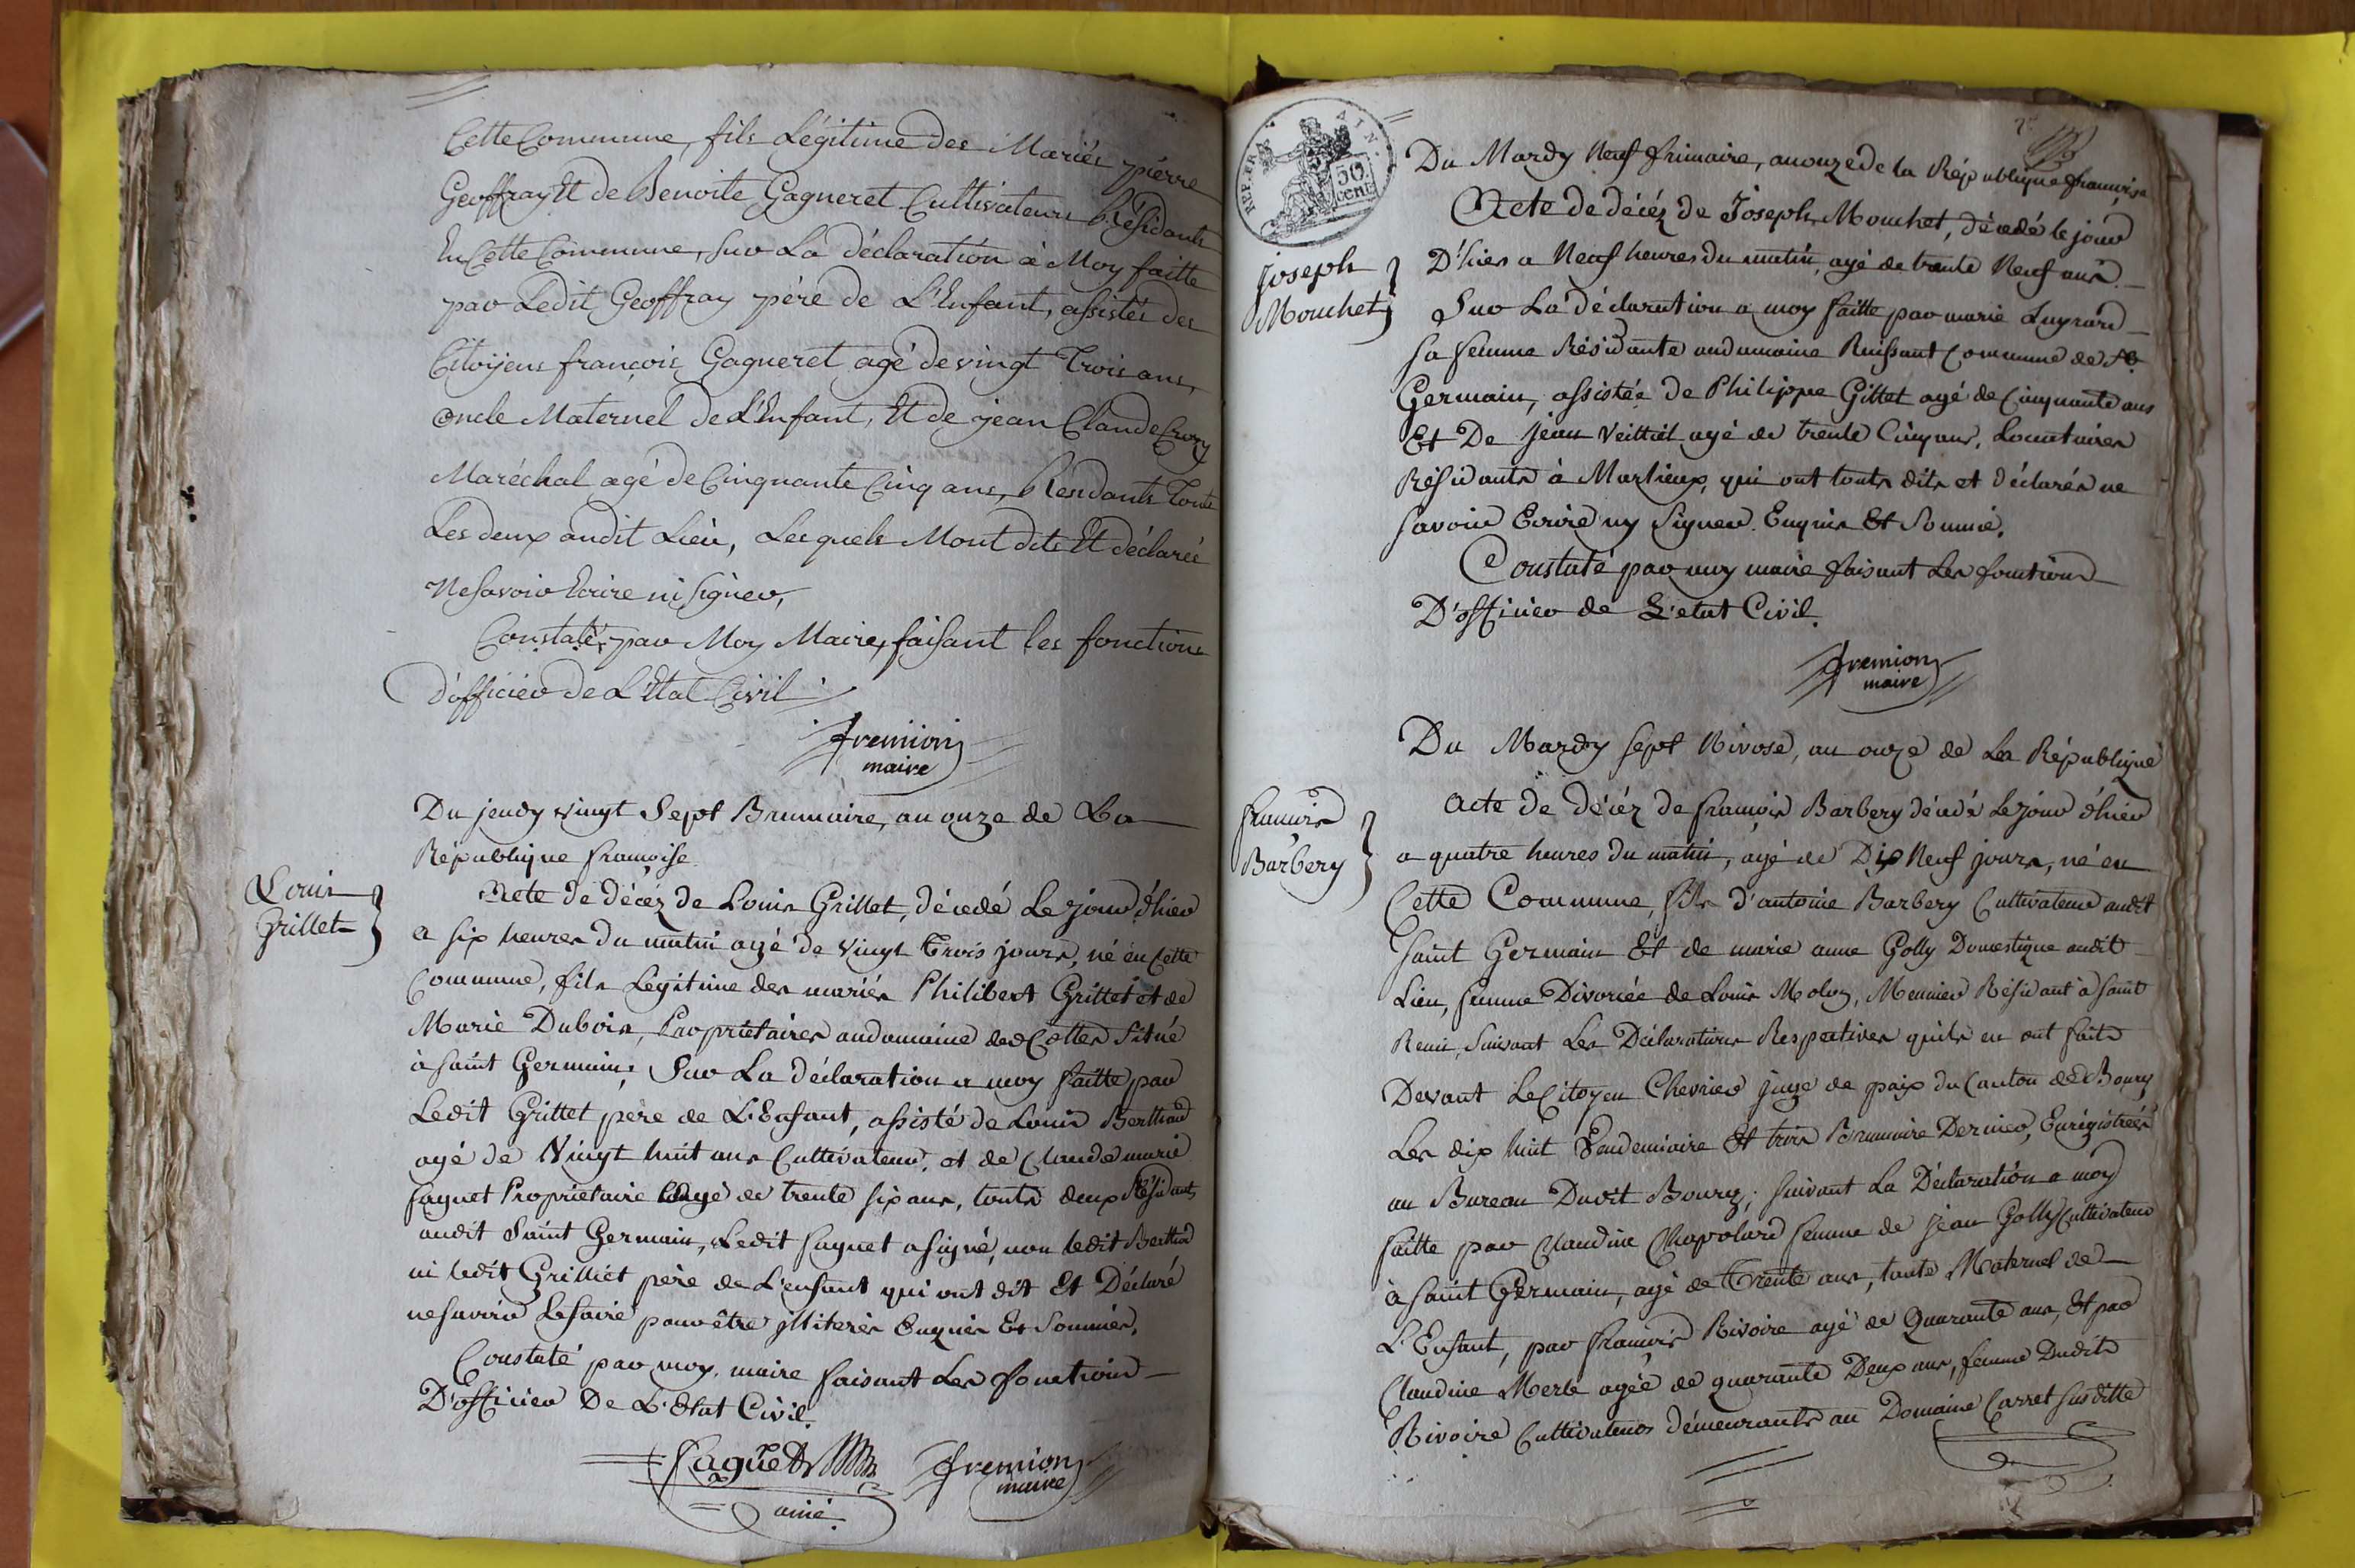 Cette Commune, fils Légitime des Mariés pierre
Geoffray Et de Benoite Gagneret Cultivateurs Résidants
En Cette Commune, Sur La déclaration à Moy faitte
par Ledit Geoffray père de L'Enfant, assistés des
Citoyens françois Gagneret agé de vingt Trois ans,
oncle Maternel de L'Enfant, Et de jean Claude Crozy
Maréchal agé de Cinquante Cinq ans, Résidants Touts
Les deux audit Lieu, Lesquels M'ont dits Et déclarés
Ne Savoir Ecrire ni Signer,
Constaté, par Moy Maire, faisant les fonctions
d'officier de L'Etat Civil
fremion
maire
Du jeudy vingt Sept Brumaire, an onze de La
République françoise.
Louis
Grillet
Acte de décéz de Louis Grillet, décedé Le jour d'hier
a six heures du matin agé de vingt Trois jours, né en Cette
Commune, fils Légitime des mariés Philibert Grillet et de
Marie Dubois, Propriétaires au domaine des Cottes Situé
à saint Germain; Sur La déclaration a moy faitte par
Ledit Grillet père de L'Enfant, assisté de Louis Berthud
agé de Vingt huit ans Cultivateur, et de Claude marie
faguet Propriétaire agé de trente six ans, touts deux Résidants
audit Saint Germain, Ledit faguet a signé, non ledit Berthud
ni ledit Grilliet père de L'enfant qui ont dit Et Déclaré
ne savoir Le faire pour être jlliterés Enquis Et Sommés,
Constaté par moy, maire faisant Les fonctions
D'officier De L'Etat Civil.
faguet fremion
ainé maire
REP. FRA. AIN.
50 CENT
Du Mardy Neuf frimaire, an onze de la République françoise
Joseph
Mouchet
Acte de décéz de Joseph Mouchet, décedé le jour
D'hier a Neuf heures du matin, agé de trente Neuf ans.
Sur La déclaration a moy faitte par marie
sa femme Résidante au domaine Ruissant Commune de St.
Germain, assistée de Philippe Gillet agé de Cinquante ans
Et De Jean Veilliet agé de trente Cinq ans, Locataires
Résidants à Marlieux, qui ont touts dits et déclarés ne
savoir Ecrire ny Signer. Enquis Et Sommé.
Constaté par moy maire faisant Les fonctions
D'officier de L'etat Civil.
fremion
maire
Du Mardy sept Nivose, an onze de La République
françois
Barbery
Acte de décéz de françois Barbery décedé Le jour d'hier
a quatre heures du matin, agé de Dix Neuf jours, né en
Cette Commune, fils d'antoine Barbery Cultivateur audit
saint Germain Et de marie anne Golly Domestique audit
Lieu, femme Divorcée de Louis Moloz, Meunier Résidant à saint
Remi, Suivant Les Déclarations Respectives qu'ils en ont faits
Devant Le Citoyen Chevrier juge de paix du Canton de Bourg
Les dix huit Vendemiaire Et trois Brumaire Dernier, Enrégistrées
au Bureau Dudit Bourg; suivant La Déclaration a moy
faitte par Claudine Chapolard femme de jean Golly Cultivateur
à saint Germain, agé de Trente ans, tante Maternel de
L'Enfant, par françois Rivoire agé de Quarante ans, Et par
Claudine Merle agée de quarante Deux ans, femme Dudit
Rivoire Cultivateurs démeurants au Domaine Carret Susditte